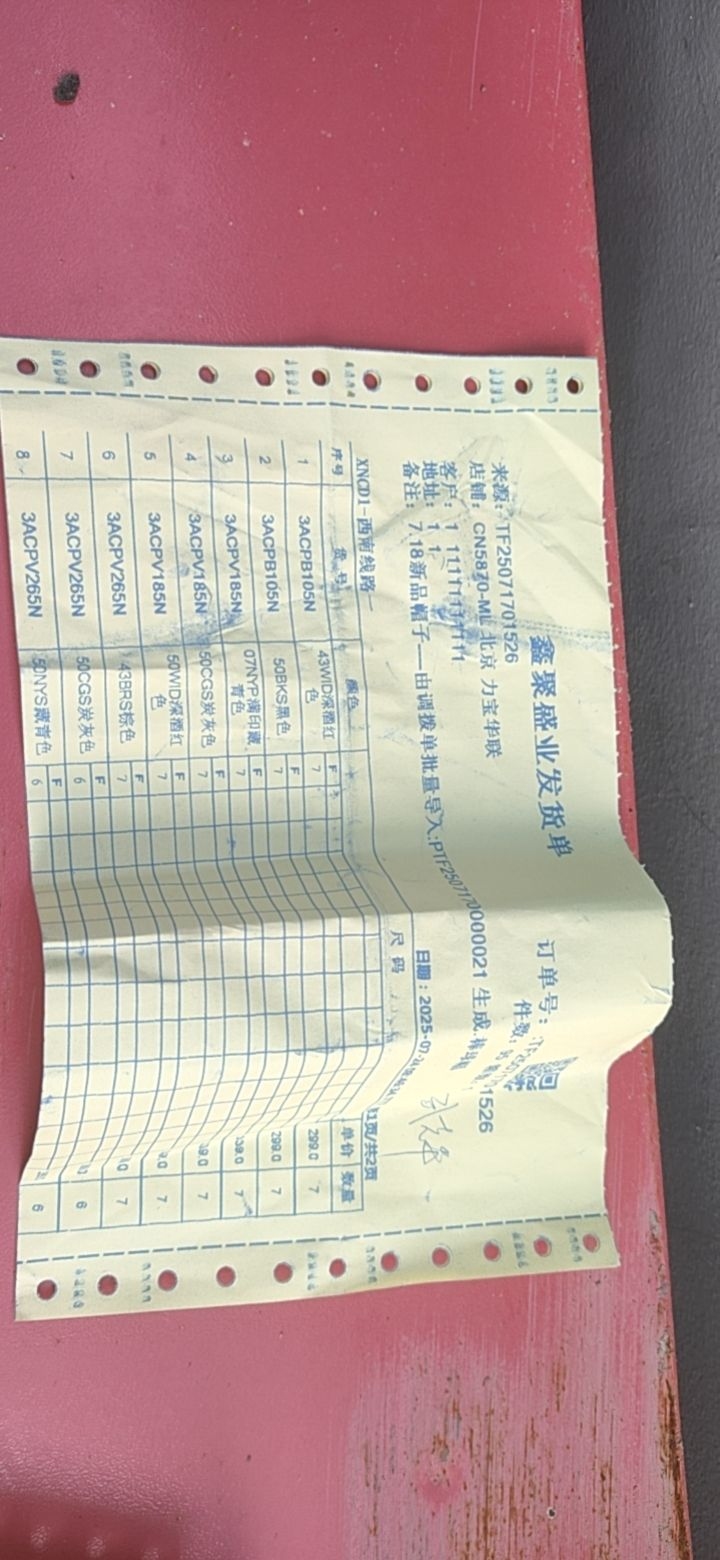 鑫聚盛业发货单
订单号：
来源：TF25071701526
件数：
1526
店铺：CN5870-ML 北京 力宝华联
客户：1 11111111111
地址：1 1
备注：7.18新品帽子——由调拨单批量导入:PTF2507170000021 生成
日期：2025-07-
XNCD1-西南线路
/共2页
序号 货号 颜色 尺码 单价 数量
F
1 3ACPB105N 43WID深酒红色 7 299.0 7
F
2 3ACPB105N 50BKS黑色 7 299.0 7
F
3 3ACPV185N 07NYP满印藏青色 7 7
F
4 3ACPV185N 50CGS炭灰色 7 7
F
5 3ACPV185N 50WID深酒红色 7 7
F
6 3ACPV265N 43BRS棕色 7 7
F
7 3ACPV265N 50CGS炭灰色 6 6
F
8 3ACPV265N 50NYS藏青色 6 6